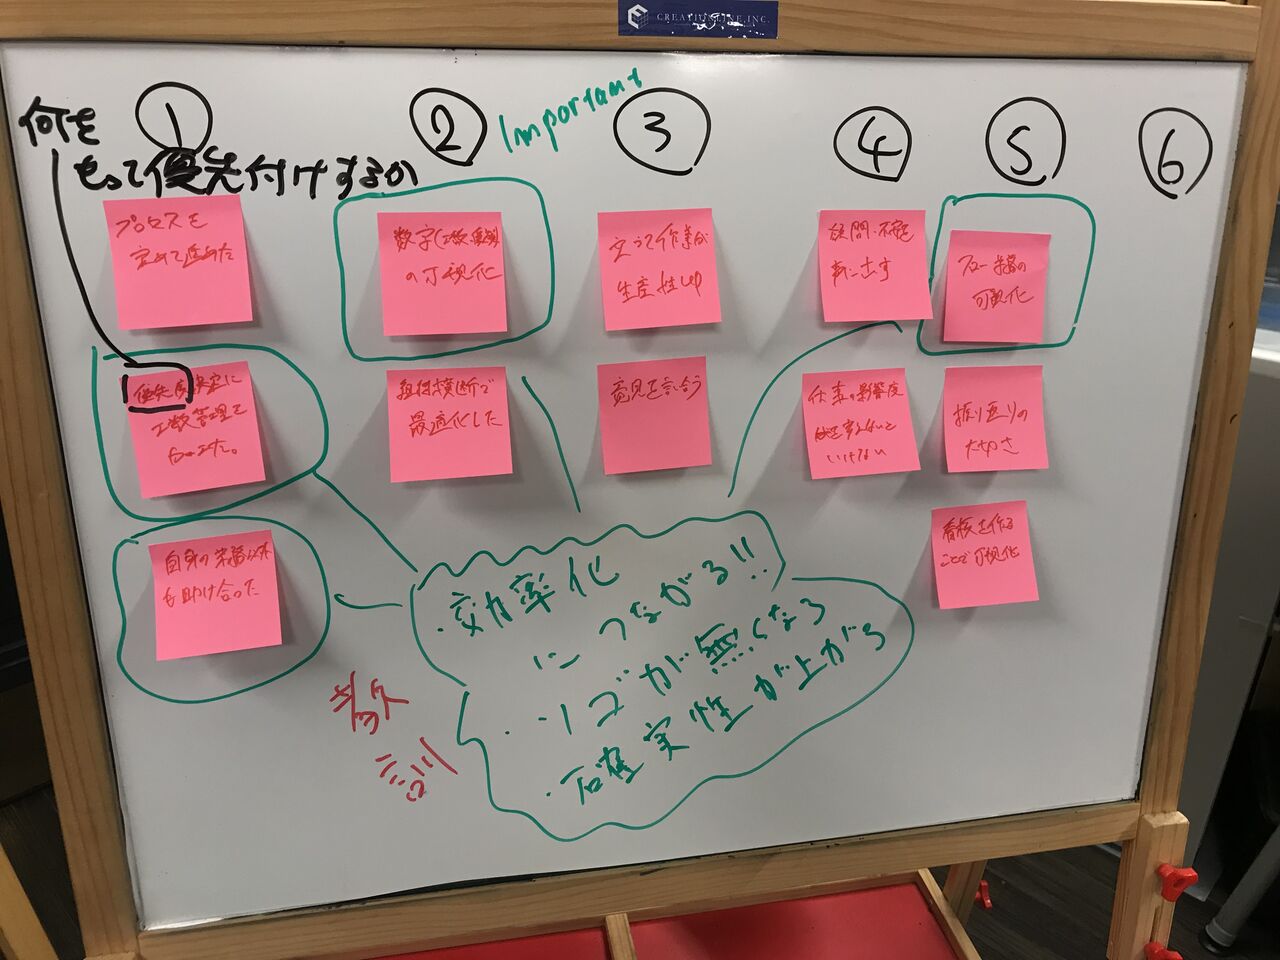 CREATIONLINE, INC.
何を
もって優先付けするか
①
② Important
③
④
⑤
⑥
プロセスを
定めて進めた
優先度決定に
工数管理を
自身の業務以外
も助け合った
数字(工数・
の可視化
組織横断で
最適化した
立って作業が
生産性up
意見を言い合う
疑問・不安
表に出す
仕事の影響度
いけない
フロー・業務の
可視化
振り返りの
大切さ
看板を作る
ことで可視化
・効率化
につながる!!
・ソゴが無くなる
・確実性が上がる
教
訓